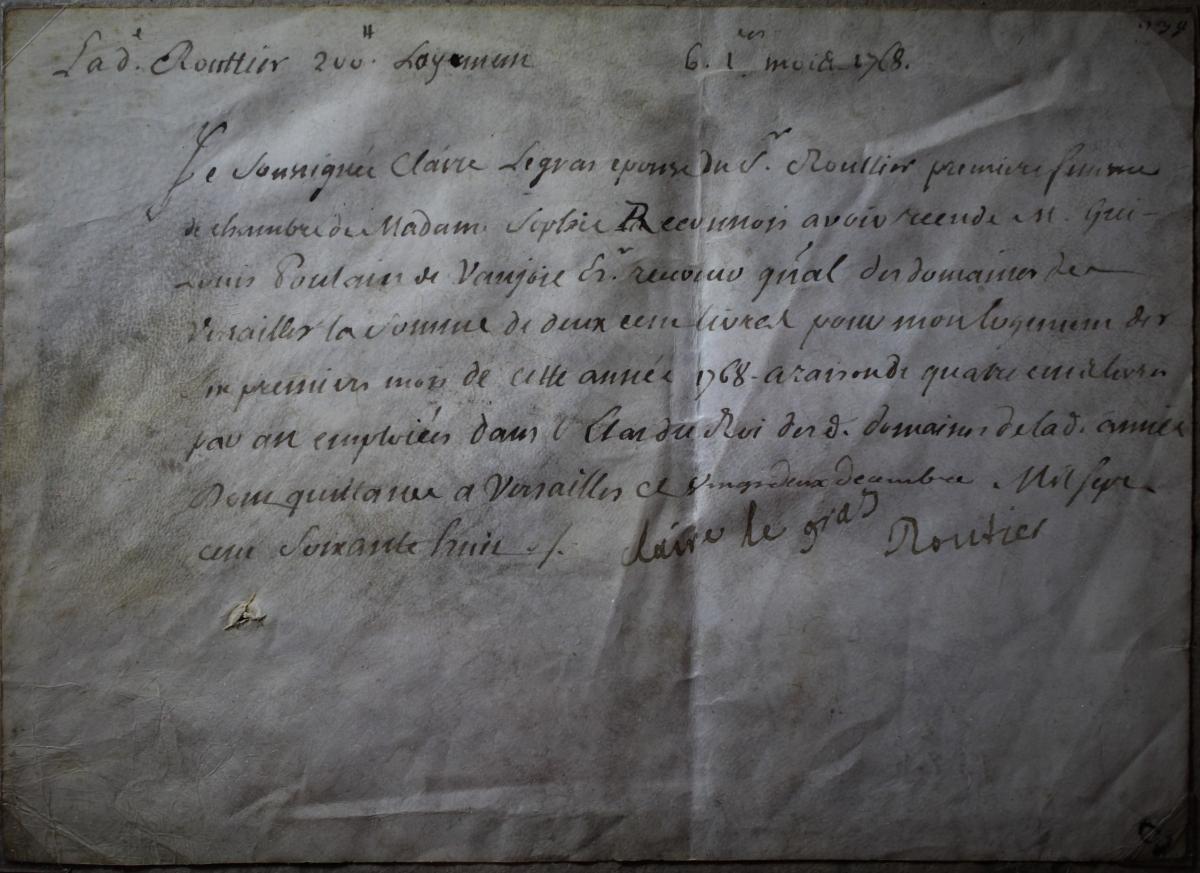 La d.e Routtier 200.tt Logement 6. 1ers mois 1768.
Je Soussignée Claire Legras epouse du S.r Routtier premiere femme
de chambre de Madame Sophie Reconnois avoir recu de M. Gui-
Louis Poulain de Vaujoie Ec.r receveur g'ñal des domaines de
Versailles la Somme de deux cent livres pour mon logement des
six premiers mois de cette année 1768 - a raison de quatre cent livres
par an emploiées dans l'Etat du Roi des d. domaines de lad. année
Dont quittance a Versailles ce vingt deux decembre Mil sept
cent Soixante huit ./.
claire le gras Routier